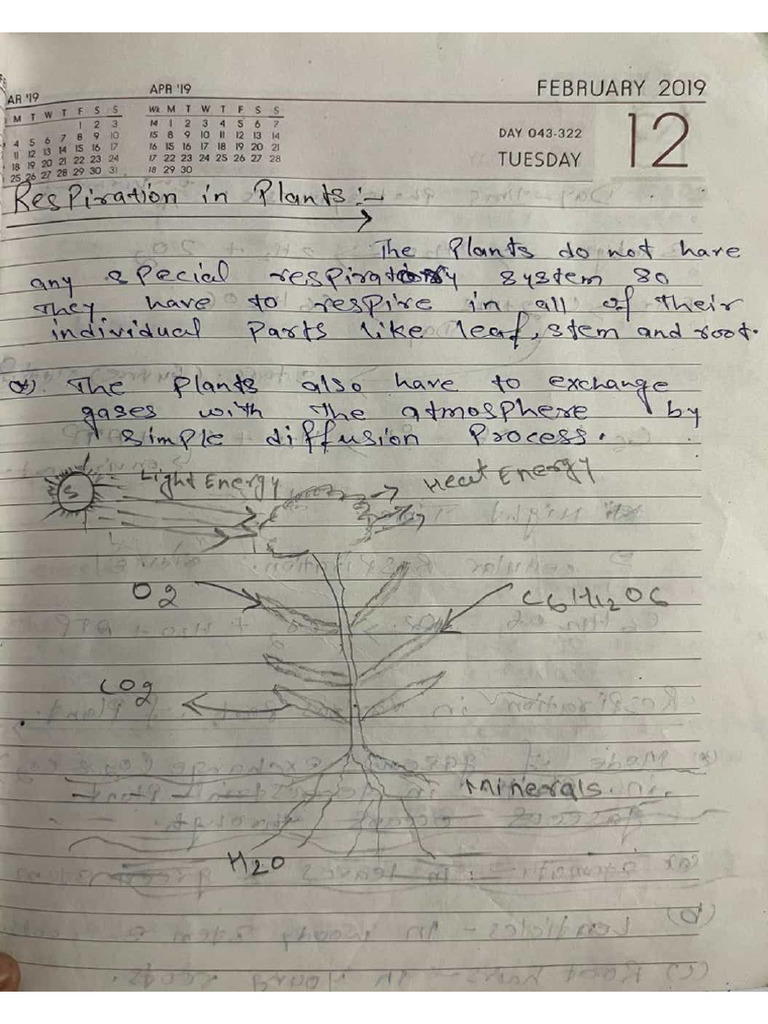 AR '19
M T W T F S S
1 2 3
4 5 6 7 8 9 10
11 12 13 14 15 16 17
18 19 20 21 22 23 24
25 26 27 28 29 30 31
APR '19
Wk M T W T F S S
14 1 2 3 4 5 6 7
15 8 9 10 11 12 13 14
16 15 16 17 18 19 20 21
17 22 23 24 25 26 27 28
18 29 30
FEBRUARY 2019
DAY 043-322
TUESDAY
12
Respiration in Plants :-
The Plants do not have
any special respiratory system so
They have to respire in all of their
individual Parts like leaf, stem and root.
The Plants also have to exchange
gases with The atmosphere by
simple diffusion Process.
S
Light Energy
Heat Energy
O2
C6H12O6
CO2
Minerals.
H2O